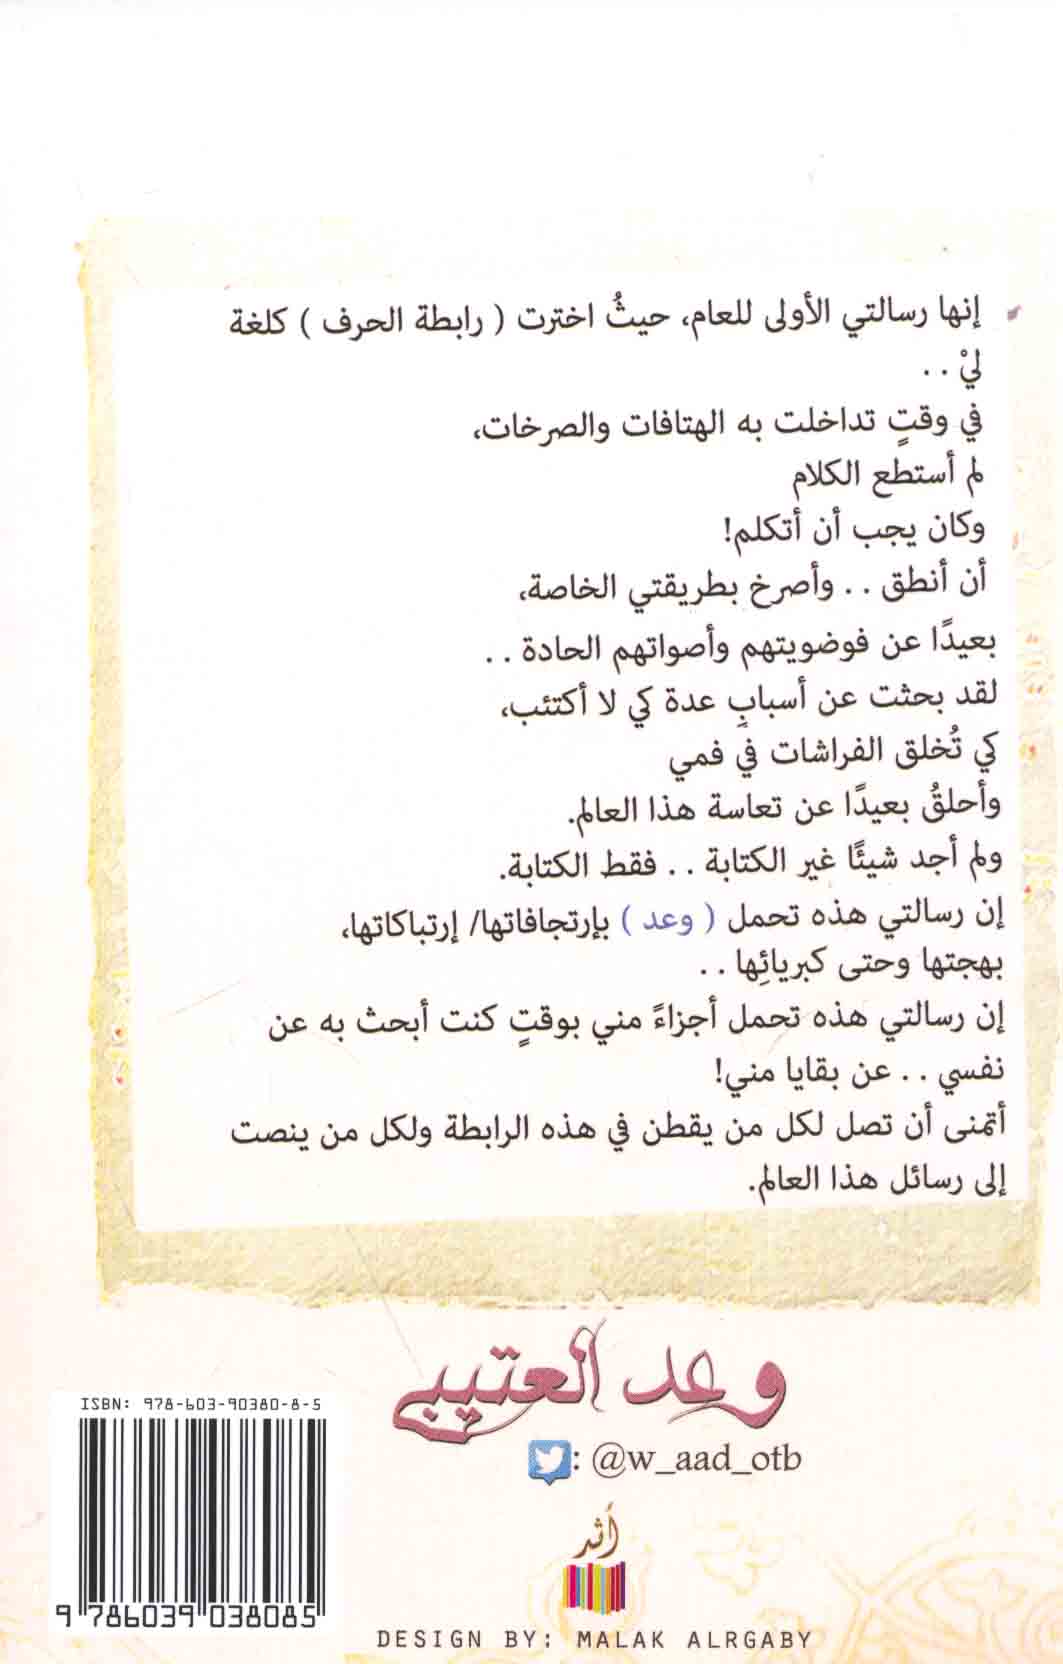 إنها رسالتي الأولى للعام، حيثُ اخترت ( رابطة الحرف ) كلغة
ليْ . .
في وقتٍ تداخلت به الهتافات والصرخات،
لم أستطع الكلام
وكان يجب أن أتكلم!
أن أنطق . . وأصرخ بطريقتي الخاصة،
بعيدًا عن فوضويتهم وأصواتهم الحادة . .
لقد بحثت عن أسبابٍ عدة كي لا أكتئب،
كي تُخلق الفراشات في فمي
وأحلقُ بعيدًا عن تعاسة هذا العالم.
ولم أجد شيئًا غير الكتابة . . فقط الكتابة.
إن رسالتي هذه تحمل ( وعد ) بإرتجافاتها/ إرتباكاتها،
بهجتها وحتى كبريائِها . .
إن رسالتي هذه تحمل أجزاءً مني بوقتٍ كنت أبحث به عن
نفسي . . عن بقايا مني!
أتمنى أن تصل لكل من يقطن في هذه الرابطة ولكل من ينصت
إلى رسائل هذا العالم.
وعد العتيبي
: @w_aad_otb
ISBN: 978-603-90380-8-5
9 786039 038085
أثر
DESIGN BY: MALAK ALRGABY